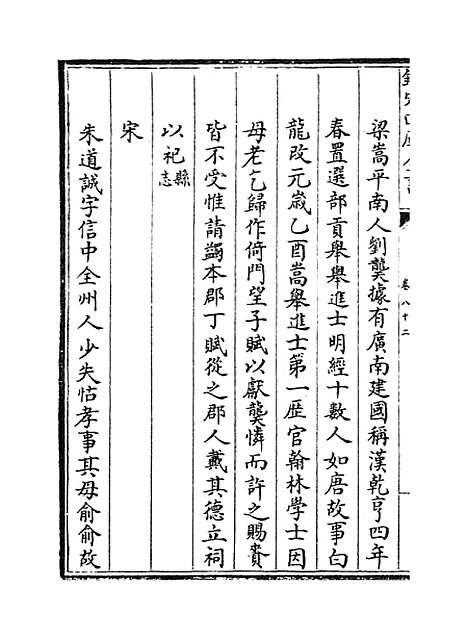 欽定四庫全書
卷八十二
梁嵩平南人劉龑據有廣南建國稱漢乾亨四年
春置選部貢舉舉進士明經十數人如唐故事白
龍改元歲乙酉嵩舉進士第一歷官翰林學士因
母老乞歸作倚門望子賦以獻龑憐而許之賜賚
皆不受惟請蠲本郡丁賦從之郡人戴其德立祠
以祀縣志
宋
朱道誠字信中全州人少失怙孝事其母俞俞故